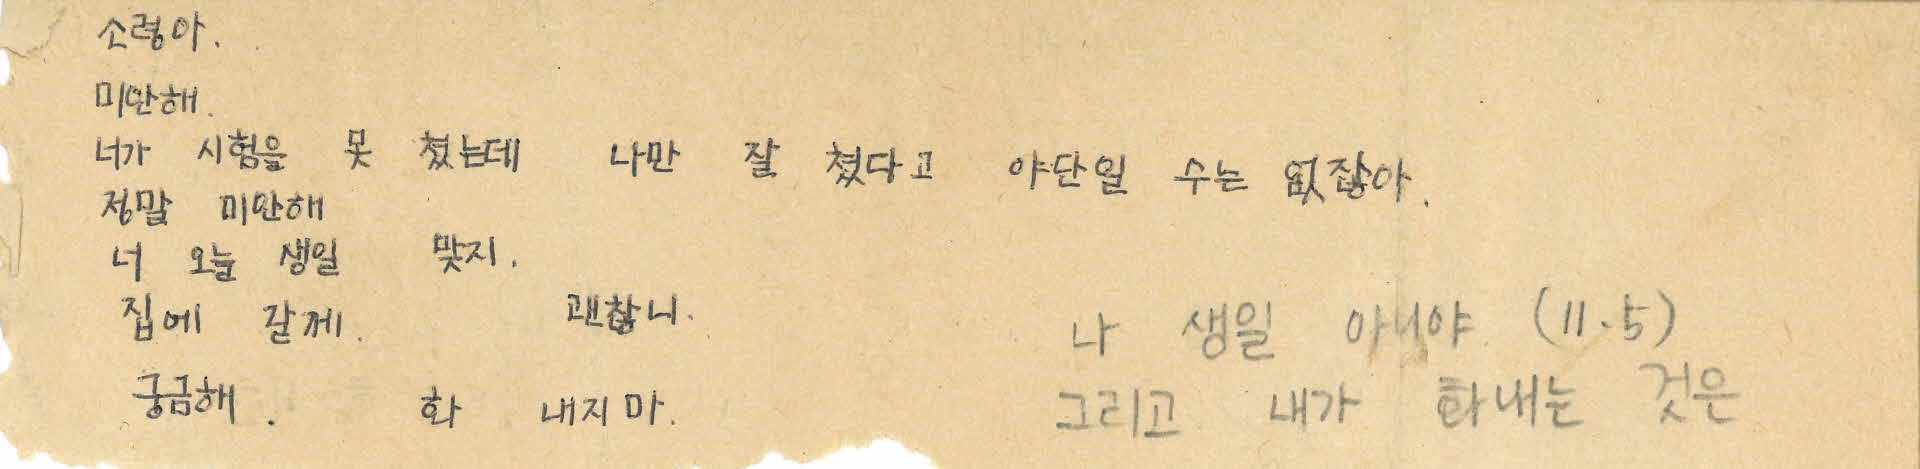 소령아.
미안해.
너가 시험을 못 쳤는데 나만 잘 쳤다고 야단일 수는 없잖아.
정말 미안해
너 오늘 생일 맞지.
집에 갈께. 괜찮니.
궁금해. 화 내지마.
나 생일 아니야 (11.5)
그리고 내가 화내는 것은